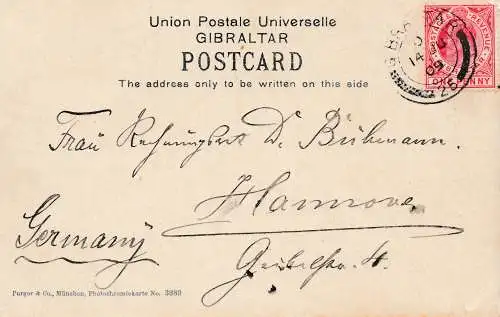 Union Postale Universelle
GIBRALTAR
POSTCARD
The address only to be written on this side
POSTAGE & REVENUE
ONE PENNY
14
09
26
Frau Rechnungsrat D. Bühmann.
Hannover
Germany
Purger & Co., München, Photochromiekarte No. 3880